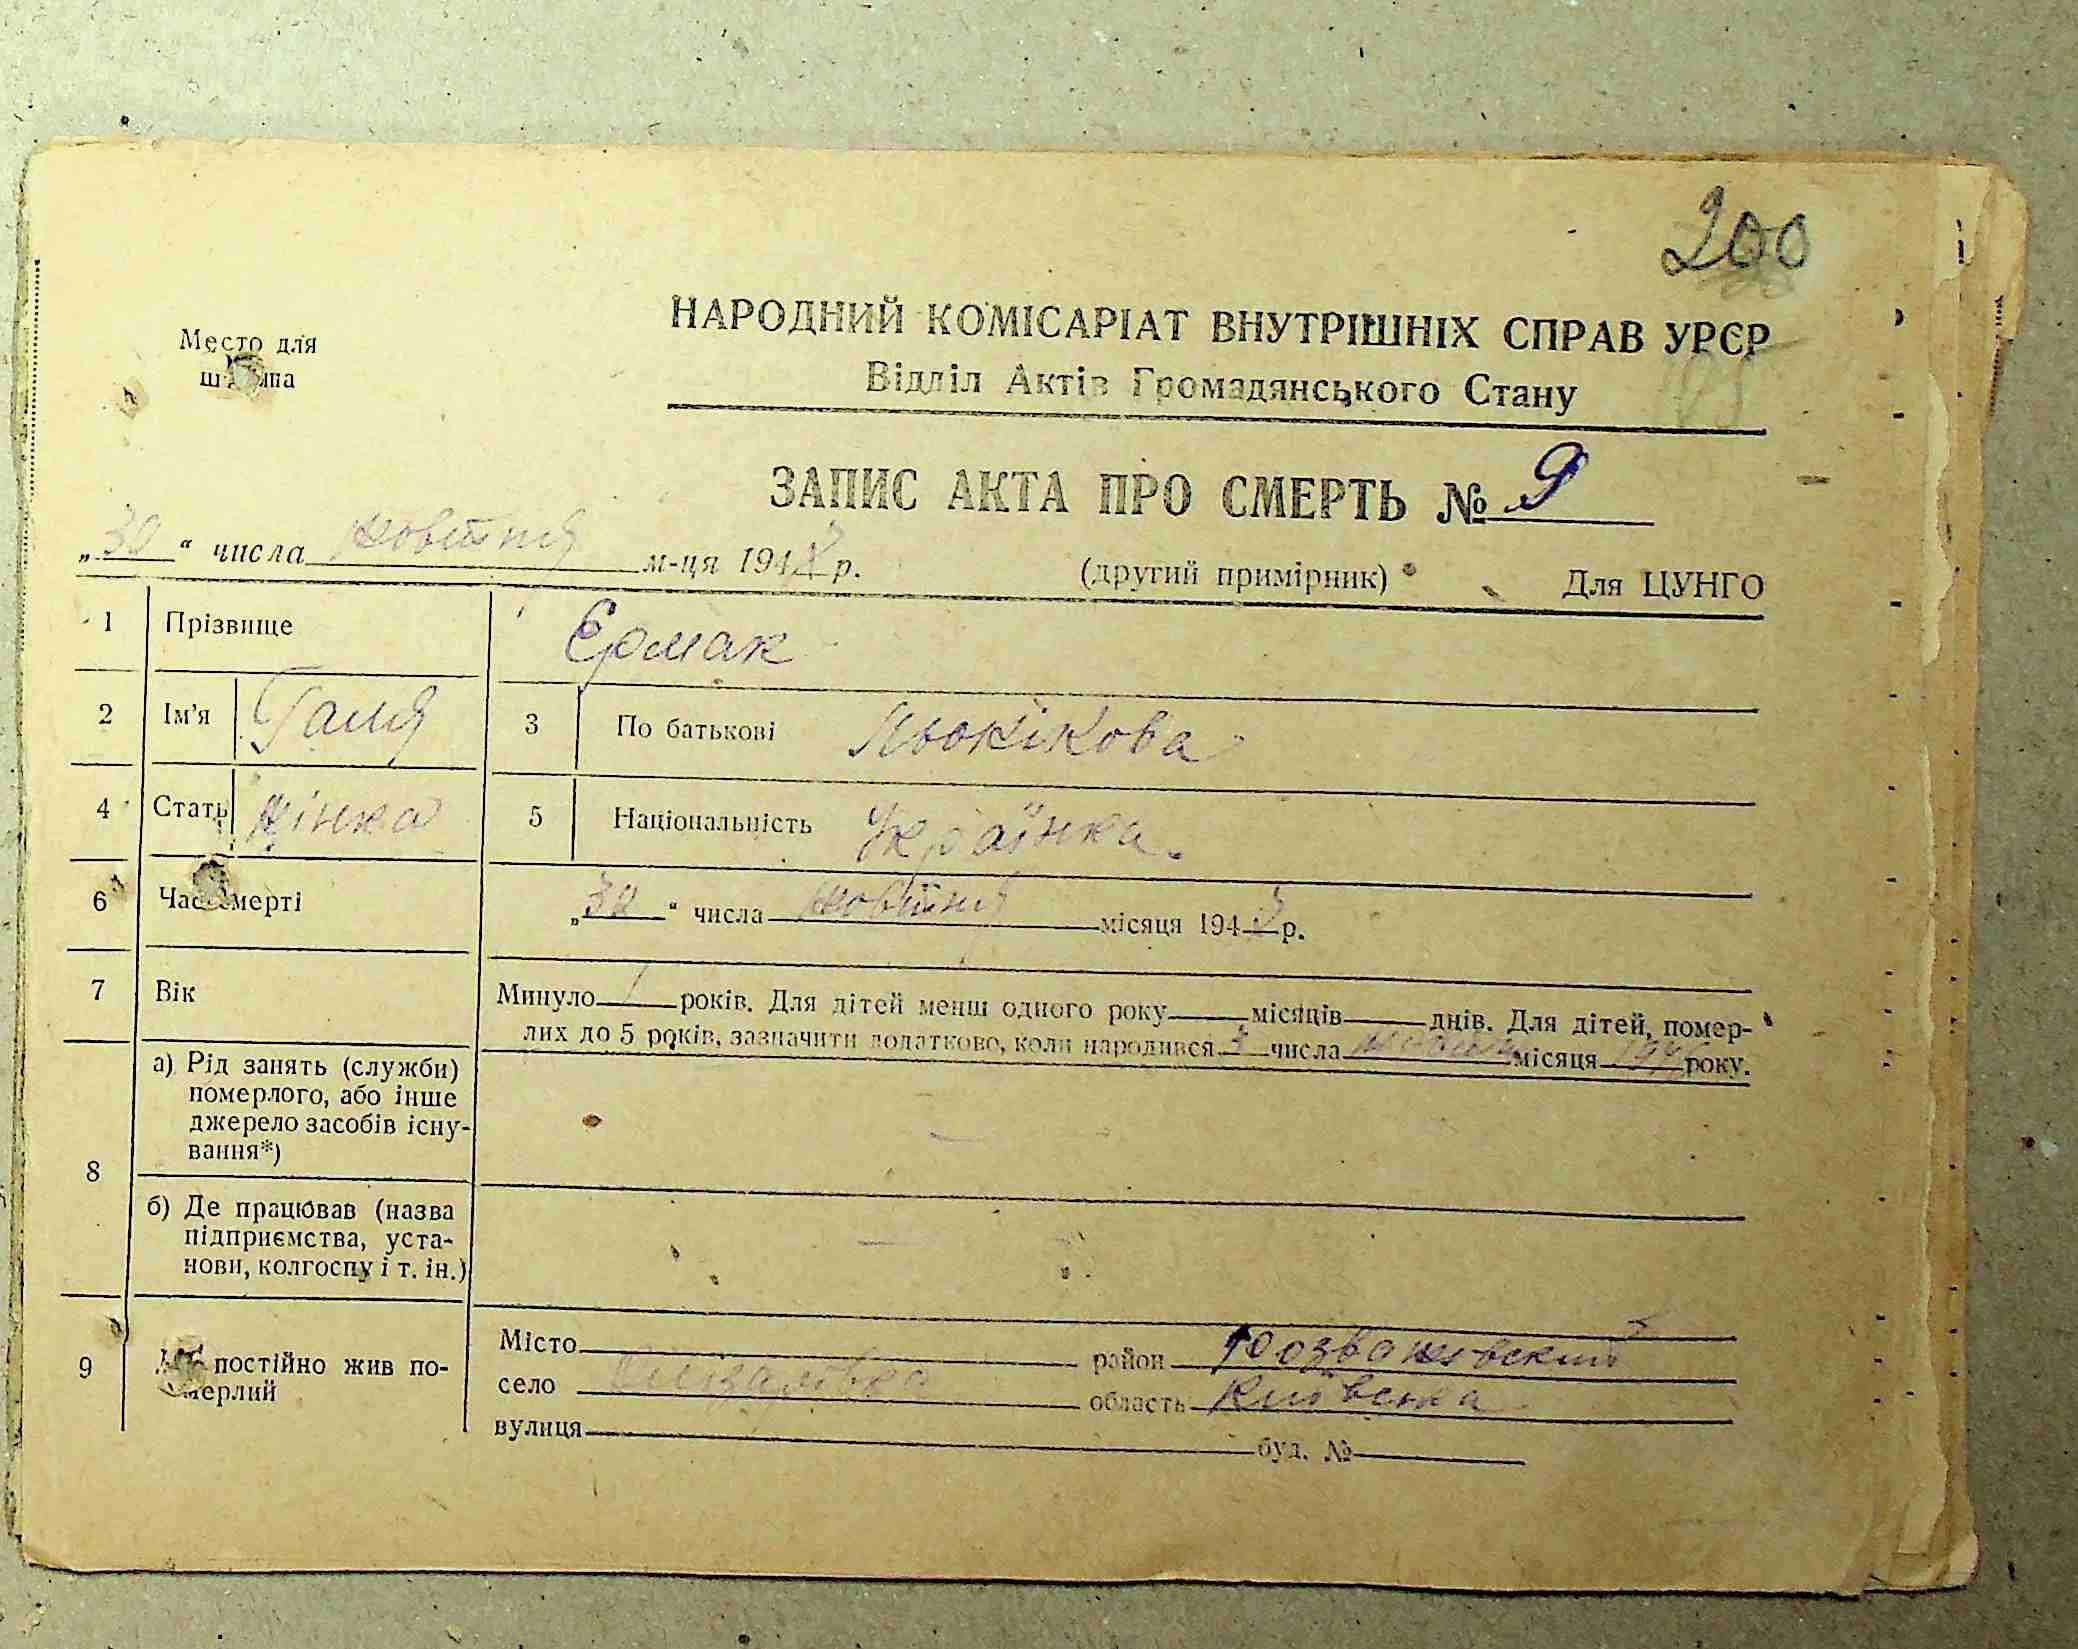 200
Место для
штампа
НАРОДНИЙ КОМІСАРІАТ ВНУТРІШНІХ СПРАВ УРЄР
Відділ Актів Громадянського Стану
ЗАПИС АКТА ПРО СМЕРТЬ № 9
„30“ числа жовтня м-ця 1943 р. (другий примірник) Для ЦУНГО
1 Прізвище Єрмак
2 Ім'я Галя 3 По батькові
4 Стать жінка 5 Національність Українка.
6 Час смерті „30“ числа жовтня місяця 1943 р.
7 Вік Минуло 1 років. Для дітей менш одного року місяців днів. Для дітей, помер-
лих до 5 років, зазначити додатково, коли народився 3 числа місяця року.
8 а) Рід занять (служби)
померлого, або інше
джерело засобів існу-
вання*)
б) Де працював (назва
підприємства, уста-
нови, колгоспу і т. ін.)
9 Де постійно жив по-
мерлий
Місто район Розважевский
село область Київська
вулиця буд. №